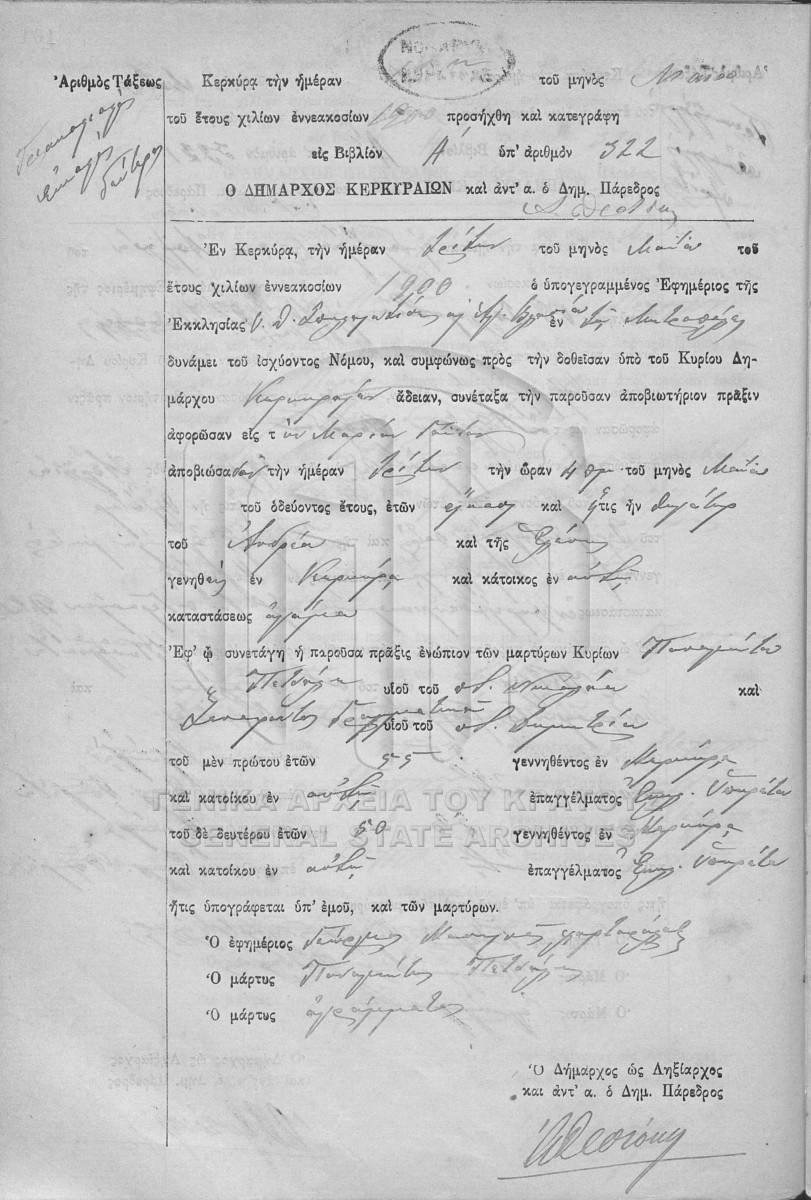 Ἀριθμὸς Τάξεως
Τριακοσιοστὸς
εἰκοστὸς
δεύτερος
Κερκύρᾳ τὴν ἡμέραν τοῦ μηνὸς Μαΐου
τοῦ ἔτους χιλίων ἐννεακοσίων 1900 προσήχθη καὶ κατεγράφη
εἰς Βιβλίον Α' ὑπ' ἀριθμὸν 322
Ο ΔΗΜΑΡΧΟΣ ΚΕΡΚΥΡΑΙΩΝ καὶ ἀντ' α. ὁ Δημ. Πάρεδρος
Ἐν Κερκύρᾳ, τὴν ἡμέραν τρίτην τοῦ μηνὸς Μαΐου τοῦ
ἔτους χιλίων ἐννεακοσίων 1900 ὁ ὑπογεγραμμένος Ἐφημέριος τῆς
Ἐκκλησίας Υ. Θ. Σπηλαιωτίσσης ἐν τῇ Μητροπόλει
δυνάμει τοῦ ἰσχύοντος Νόμου, καὶ συμφώνως πρὸς τὴν δοθεῖσαν ὑπὸ τοῦ Κυρίου Δη-
μάρχου Κερκυραίων ἄδειαν, συνέταξα τὴν παροῦσαν ἀποβιωτήριον πρᾶξιν
ἀφορῶσαν εἰς τὴν Μαρίαν
ἀποβιώσασαν τὴν ἡμέραν τρίτην τὴν ὥραν 4 πμ τοῦ μηνὸς Μαΐου
τοῦ ὁδεύοντος ἔτους, ἐτῶν εἴκοσι καὶ ἥτις ἦν θυγάτηρ
τοῦ Ἀνδρέα καὶ τῆς Ἑλένης
γενηθεῖς ἐν Κερκύρᾳ καὶ κάτοικος ἐν αὐτῇ
καταστάσεως ἄγαμος
Ἐφ' ᾧ συνετάγη ἡ παροῦσα πρᾶξις ἐνώπιον τῶν μαρτύρων Κυρίων Παναγιώτου
Πετσάλη υἱοῦ τοῦ ποτ. Νικολάου καὶ
Σπυρίδωνος Γραμματικοῦ υἱοῦ τοῦ ποτ. Δημητρίου
τοῦ μὲν πρώτου ἐτῶν 55 γεννηθέντος ἐν Κερκύρᾳ
καὶ κατοίκου ἐν αὐτῇ ἐπαγγέλματος Ἐκκλ. Ὑπηρέτου
τοῦ δὲ δευτέρου ἐτῶν 50 γεννηθέντος ἐν Κερκύρᾳ
καὶ κατοίκου ἐν αὐτῇ ἐπαγγέλματος Ἐκκλ. Ὑπηρέτου
ἥτις ὑπογράφεται ὑπ' ἐμοῦ, καὶ τῶν μαρτύρων.
Ὁ ἐφημέριος Γεώργιος
Ὁ μάρτυς Παναγιώτης Πετσάλης
Ὁ μάρτυς ἀγράμματος
Ὁ Δήμαρχος ὡς Ληξίαρχος
και ἀντ' α. ὁ Δημ. Πάρεδρος
ΓΕΝΙΚΑ ΑΡΧΕΙΑ ΤΟΥ ΚΡΑΤΟΥΣ
GENERAL STATE ARCHIVES